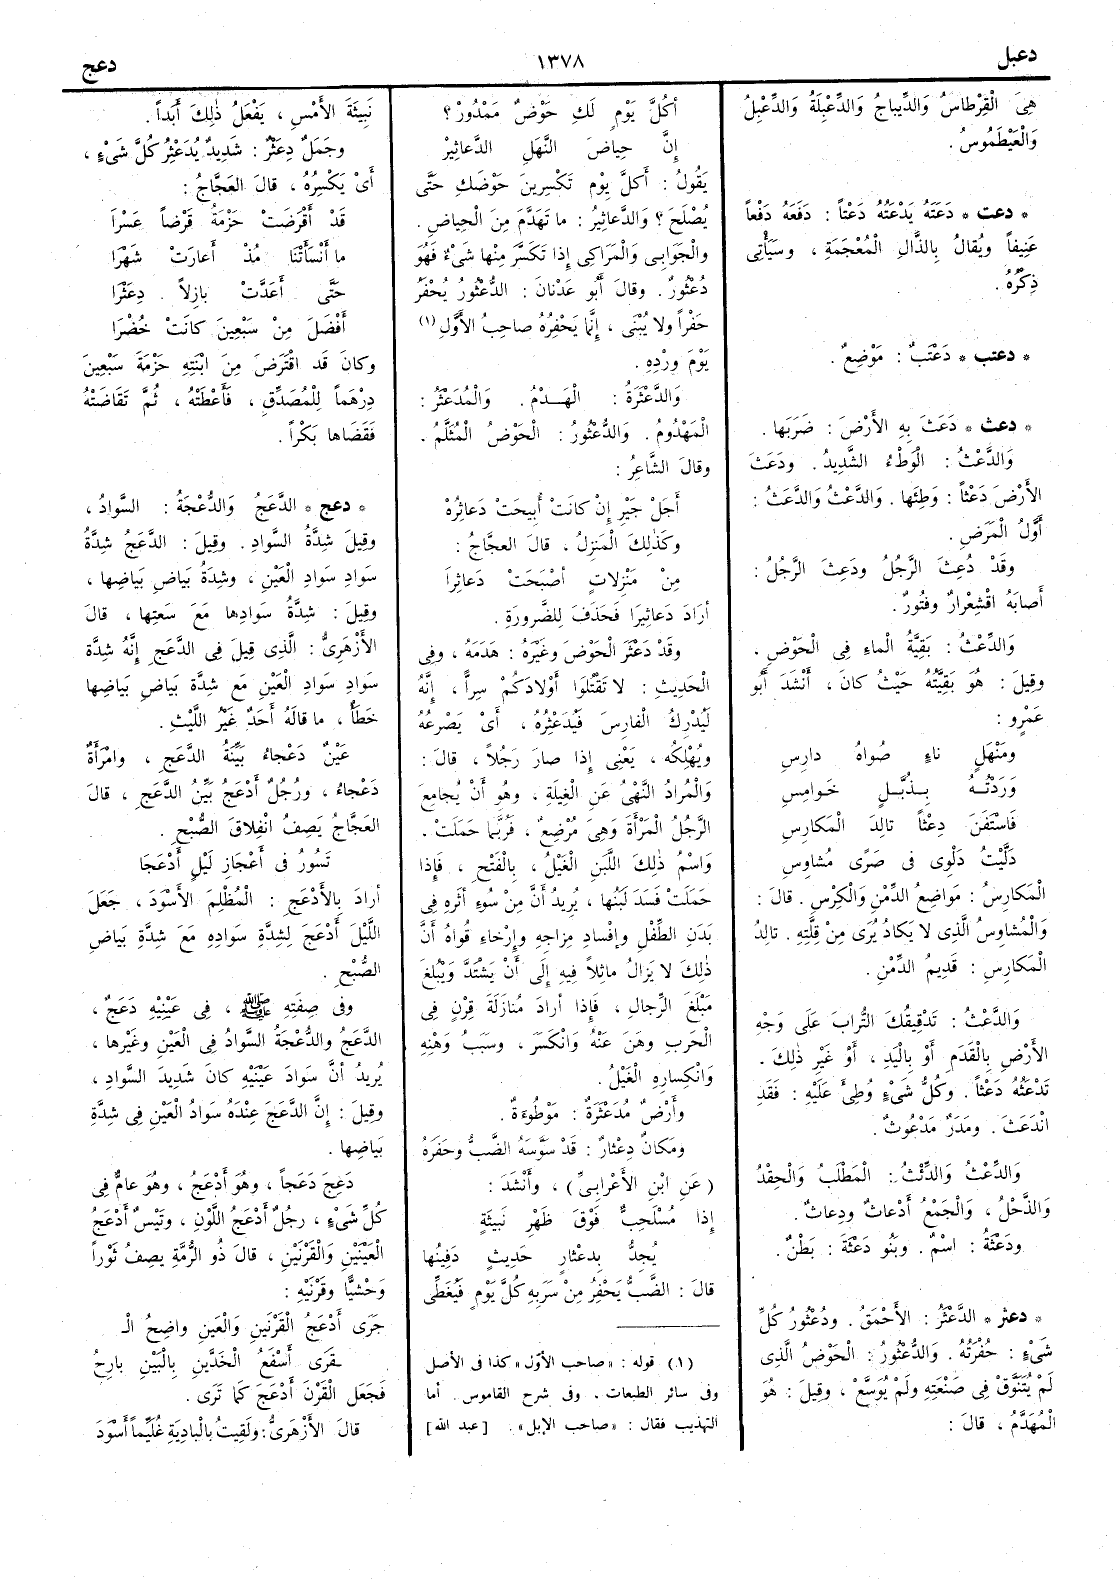 دعبل
١٣٧٨
دعج
هِىَ الْقِرْطاسُ وَالدِّيباجُ وَالدِّعْبِلَةُ وَالدِّعْبِلُ
وَالْعَيْطَمُوسُ .
* دعت * دَعَتَهُ يَدْعَتُهُ دَعْتاً : دَفَعَهُ دَفْعاً
عَنِيفاً وَيُقالُ بِالذَّالِ الْمُعْجَمَةِ ، وَسَيَأْتِى
ذِكْرُهُ .
* دعتب * دَعْتَبٌ : مَوْضِعٌ .
* دعث * دَعَثَ بِهِ الأَرْضَ : ضَرَبَها .
وَالدَّعْثُ : الْوَطْءُ الشَّدِيدُ . ودَعَثَ
الأَرْضَ دَعْثاً : وَطِئَها . وَالدَّعْثُ وَالدَّعَثُ :
أَوَّلُ الْمَرَضِ .
وَقَدْ دُعِثَ الرَّجُلُ ودَعِثَ الرَّجُلُ :
أَصابَهُ اقْشِعْرارٌ وَفُتُورٌ .
وَالدِّعْثُ : بَقِيَّةُ الْماءِ فِى الْحَوْضِ .
وَقِيلَ : هُوَ بَقِيَّتُهُ حَيْثُ كانَ ، أَنْشَدَ أَبُو
عَمْرٍو :
ومَنْهَلٍ ناءٍ صُواهُ دارِسِ
وَرَدْتُهُ بِذُبَّلٍ خَوامِسِ
فَاسْتَفَنَ دِعْثاً تالِدَ الْمَكارِسِ
دَلَّيْتُ دَلْوِى فى صَرًى مُشاوِسِ
الْمَكارِسُ : مَواضِعُ الدِّمْنِ وَالْكِرْسِ . قالَ :
وَالْمُشاوِسُ الَّذِى لا يَكادُ يُرَى مِنْ قِلَّتِهِ . تالِدُ
الْمَكارِسِ : قَدِيمُ الدِّمْنِ .
وَالدَّعْثُ : تَدْقِيقُكَ التُّرابَ عَلَى وَجْهِ
الأَرْضِ بِالْقَدَمِ أَوْ بِالْيَدِ ، أَوْ غَيْرِ ذٰلِكَ .
تَدْعَثُهُ دَعْثاً . وَكُلُّ شَىْءٍ وُطِئَ عَلَيْهِ : فَقَدِ
انْدَعَثَ . ومَدَرٌ مَدْعُوثٌ .
وَالدِّعْثُ وَالدِّئْثُ : الْمَطْلَبُ وَالْحِقْدُ
وَالذَّحْلُ ، وَالْجَمْعُ أَدْعاثٌ ودِعاثٌ .
ودَعْثَةُ : اسْمٌ . وَبَنُو دَعْثَةَ : بَطْنٌ .
* دعثر * الدَّعْثَرُ : الأَحْمَقُ . ودُعْثُورُ كُلِّ
شَىْءٍ : حُفْرَتُهُ . وَالدُّعْثُورُ : الْحَوْضُ الَّذِى
لَمْ يُتَنَوَّقْ فِى صَنْعَتِهِ وَلَمْ يُوَسَّعْ ، وَقِيلَ : هُوَ
الْمُهَدَّمُ ، قالَ :
أَكُلَّ يَوْمٍ لَكِ حَوْضٌ مَمْدُورْ ؟
إِنَّ حِياضَ النَّهَلِ الدَّعاثِيرْ
يَقُولُ : أَكُلَّ يَوْمٍ تَكْسِرِينَ حَوْضَكِ حَتَّى
يُصْلَحَ ؟ وَالدَّعاثِيرُ : ما تَهَدَّمَ مِنَ الْحِياضِ .
وَالْجَوابِى وَالْمَراكِى إِذا تَكَسَّرَ مِنْها شَىْءٌ فَهُوَ
دُعْثُورٌ . وَقالَ أَبُو عَدْنانَ : الدُّعْثُورُ يُحْفَرُ
حَفْراً وَلا يُبْنَى ، إِنَّما يَحْفِرُهُ صاحِبُ الأَوَّلِ (١)
يَوْمَ وِرْدِهِ .
وَالدَّعْثَرَةُ : الْهَدْمُ . وَالْمُدَعْثَرُ :
الْمَهْدُومُ . وَالدُّعْثُورُ : الْحَوْضُ الْمُثَلَّمُ .
وَقالَ الشَّاعِرُ :
أَجَلْ جَيْرِ إِنْ كانَتْ أُبِيحَتْ دَعاثِرُهْ
وَكَذٰلِكَ الْمَنْزِلُ ، قالَ العَجَّاجُ :
مِنْ مَنْزِلاتٍ أَصْبَحَتْ دَعاثِراَ
أَرادَ دَعاثِيرَا فَحَذَفَ لِلضَّرُورَةِ .
وَقَدْ دَعْثَرَ الْحَوْضَ وَغَيْرَهُ : هَدَمَهُ ، وَفِى
الْحَدِيثِ : لا تَقْتُلُوا أَوْلادَكُمْ سِرًّا ، إِنَّهُ
لَيُدْرِكُ الْفارِسَ فَيُدَعْثِرُهُ ، أَىْ يَصْرَعُهُ
وَيُهْلِكُهُ ، يَعْنِى إِذا صارَ رَجُلاً ، قالَ :
وَالْمُرادُ النَّهْىُ عَنِ الْغِيلَةِ ، وَهُوَ أَنْ يُجامِعَ
الرَّجُلُ الْمَرْأَةَ وَهِىَ مُرْضِعٌ ، فَرُبَّما حَمَلَتْ .
وَاسْمُ ذٰلِكَ اللَّبَنِ الْغَيْلُ ، بِالْفَتْحِ ، فَإِذا
حَمَلَتْ فَسَدَ لَبَنُها ، يُرِيدُ أَنَّ مِنْ سُوءِ أَثَرِهِ فِى
بَدَنِ الطِّفْلِ وَإِفْسادِ مِزاجِهِ وَإِرْخاءِ قُواهُ أَنَّ
ذٰلِكَ لا يَزالُ ماثِلاً فِيهِ إِلَى أَنْ يَشْتَدَّ وَيَبْلُغَ
مَبْلَغَ الرِّجالِ ، فَإِذا أَرادَ مُنازَلَةَ قِرْنٍ فِى
الْحَرْبِ وَهَنَ عَنْهُ وَانْكَسَرَ ، وَسَبَبُ وَهْنِهِ
وَانْكِسارِهِ الْغَيْلُ .
وَأَرْضٌ مُدَعْثَرَةٌ : مَوْطُوءَةٌ .
ومَكانٌ دِعْثارٌ : قَدْ سَوَّسَهُ الضَّبُّ وَحَفَرَهُ
( عَنِ ابْنِ الأَعْرابِىِّ ) ، وَأَنْشَدَ :
إِذا مُسْلَحِبٌّ فَوْقَ ظَهْرِ نَبِيثَةٍ
يُجِدُّ بِدِعْثارٍ حَدِيثٍ دَفِينُها
قالَ : الضَّبُّ يَحْفِرُ مِنْ سَرَبِهِ كُلَّ يَوْمٍ فَيُغَطِّى
(١) قوله : «صاحب الأوّل» كذا فى الأصل
وفى سائر الطبعات . وفى شرح القاموس . أما
التهذيب فقال : «صاحب الإبل» . [عبد الله]
نَبِيثَةَ الأَمْسِ ، يَفْعَلُ ذٰلِكَ أَبَداً .
وجَمَلٌ دِعَثْرٌ : شَدِيدٌ يُدَعْثِرُ كُلَّ شَىْءٍ ،
أَىْ يَكْسِرُهُ ، قالَ العَجَّاجُ :
قَدْ أَقْرَضَتْ حَزْمَةُ قَرْضاً عَسْرَا
ما أَنْسَأَتْنا مُذْ أَعارَتْ شَهْرَا
حَتَّى أَعَدَّتْ بازِلاً . دِعَثْرَا
أَفْضَلَ مِنْ سَبْعِينَ كانَتْ خُضْرَا
وَكانَ قَدِ اقْتَرَضَ مِنَ ابْنَتِهِ حَزْمَةَ سَبْعِينَ
دِرْهَماً لِلْمُصَدِّقِ ، فَأَعْطَتْهُ ، ثُمَّ تَقَاضَتْهُ
فَقَضاها بَكْراً .
* دعج * الدَّعَجُ وَالدُّعْجَةُ : السَّوادُ ،
وَقِيلَ شِدَّةُ السَّوادِ . وَقِيلَ : الدَّعَجُ شِدَّةُ
سَوادِ سَوادِ الْعَيْنِ ، وَشِدَّةُ بَياضِ بَياضِها ،
وَقِيلَ : شِدَّةُ سَوادِها مَعَ سَعَتِها ، قالَ
الأَزْهَرِىُّ : الَّذِى قِيلَ فِى الدَّعَجِ إِنَّهُ شِدَّةُ
سَوادِ سَوادِ الْعَيْنِ مَع شِدَّةِ بَياضِ بَياضِها
خَطَأٌ ، ما قالَهُ أَحَدٌ غَيْرُ اللَّيْثِ .
عَيْنٌ دَعْجاءُ بَيِّنَةُ الدَّعَجِ ، وامْرَأَةٌ
دَعْجاءُ ، وَرَجُلٌ أَدْعَجُ بَيِّنُ الدَّعَجِ ، قالَ
العَجَّاجُ يَصِفُ انْفِلاقَ الصُّبْحِ .
تَسُورُ فى أَعْجازِ لَيْلٍ أَدْعَجَا
أَرادَ بِالأَدْعَجِ : الْمُظْلِمَ الأَسْوَدَ ، جَعَلَ
اللَّيْلَ أَدْعَجَ لِشِدَّةِ سَوادِهِ مَعَ شِدَّةِ بَياضِ
الصُّبْحِ .
وَفى صِفَتِهِ ﷺ ، فِى عَيْنَيْهِ دَعَجٌ ،
الدَّعَجُ وَالدُّعْجَةُ السَّوادُ فِى الْعَيْنِ وَغَيْرِها ،
يُرِيدُ أَنَّ سَوادَ عَيْنَيْهِ كانَ شَدِيدَ السَّوادِ ،
وَقِيلَ : إِنَّ الدَّعَجَ عِنْدَهُ سَوادُ الْعَيْنِ فِى شِدَّةِ
بَياضِها .
دَعِجَ دَعَجاً ، وَهُوَ أَدْعَجُ ، وَهُوَ عامٌّ فِى
كُلِّ شَىْءٍ ، رَجُلٌ أَدْعَجُ اللَّوْنِ ، وَتَيْسٌ أَدْعَجُ
الْعَيْنَيْنِ وَالْقَرْنَيْنِ ، قالَ ذُو الرُّمَّةِ يَصِفُ ثَوْراً
وَحْشِيًّا وَقَرْنَيْهِ :
جَرَى أَدْعَجُ الْقَرْنَيْنِ وَالْعَينِ واضِحُ الْـ
ـقَرَى أَسْفَعُ الْخَدَّيْنِ بِالْبَيْنِ بارِحُ
فَجَعَلَ الْقَرْنَ أَدْعَجَ كَما تَرَى .
قالَ الأَزْهَرِىُّ : وَلَقِيتُ بِالْبادِيَةِ غُلَيِّماً أَسْوَدَ